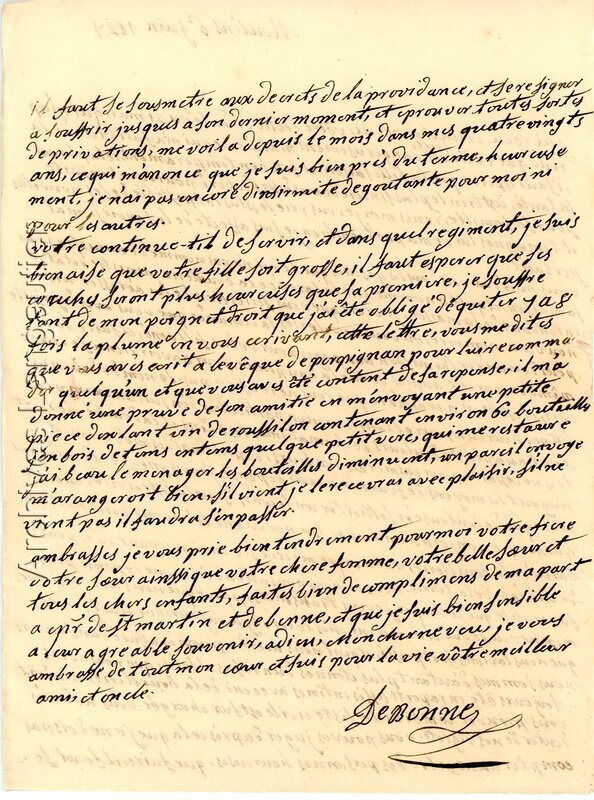 il faut se sousmetre aux decrets de la providance, et se resigner
a souffrir jusques a son dernier moment, et eprouver toutes sortes
de privations, me voila depuis le mois dans mes quatre vingts
ans, ce qui m'anonce que je suis bien pres du terme, heureuse
ment, je n'ai pas encore d'insirmité degoutante pour moi ni
pour les autres.
votre continue-til de servir, et dans quel regiment, je suis
bien aise que votre fille soit grosse, il faut esperer que ses
couches seront plus heureuses que sa premiere, je souffre
tant de mon poignet droit que j'ai été obligé de quiter 7 a 8
fois la plume en vous ecrivant, cette lettre, vous me dites
que vous avés ecrit a levêque de perpignan pour lui recomma
der quelqu'un et que vous avés été content de sa reponse, il m'a
donné une pruve de son amitié en m'envoyant une petite
piece d'exelant vin de roussillon contenant environ 60 bouteilles
j'en bois de tems en tems quelque petit vere, qui me restaure
j'ai beau le menager les bouteilles diminuent, un pareil envoye
m'arangeroit bien, s'il vient je le recevrai avec plaisir, s'il ne
vient pas il faudra s'en passer.
ambrassés je vous prie bien tendrement pour moi votre frere
votre sœur ainssi que votre chere femme, votre belle sœur et
tous les chers enfants, faites bien de complimens de ma part
a de St martin et de bonne, et que je suis bien sensible
a leur agreable souvenir, adieu, mon cher neveu, je vous
ambrasse de tout mon cœur et suis pour la vie vôtre meilleur
ami, et oncle.
DeBonne
Moulins 6 juin 1827